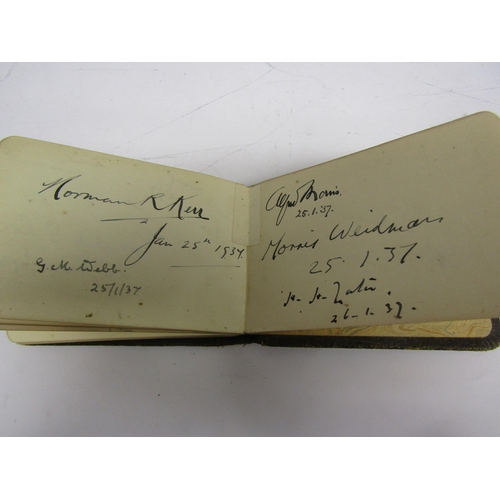 Norman R Kerr
Jan 25th 1937
G. M. Webb.
25/1/37
Alfred Morris.
25.1.37.
Morris Weidman
25.1.37.
26-1-37.